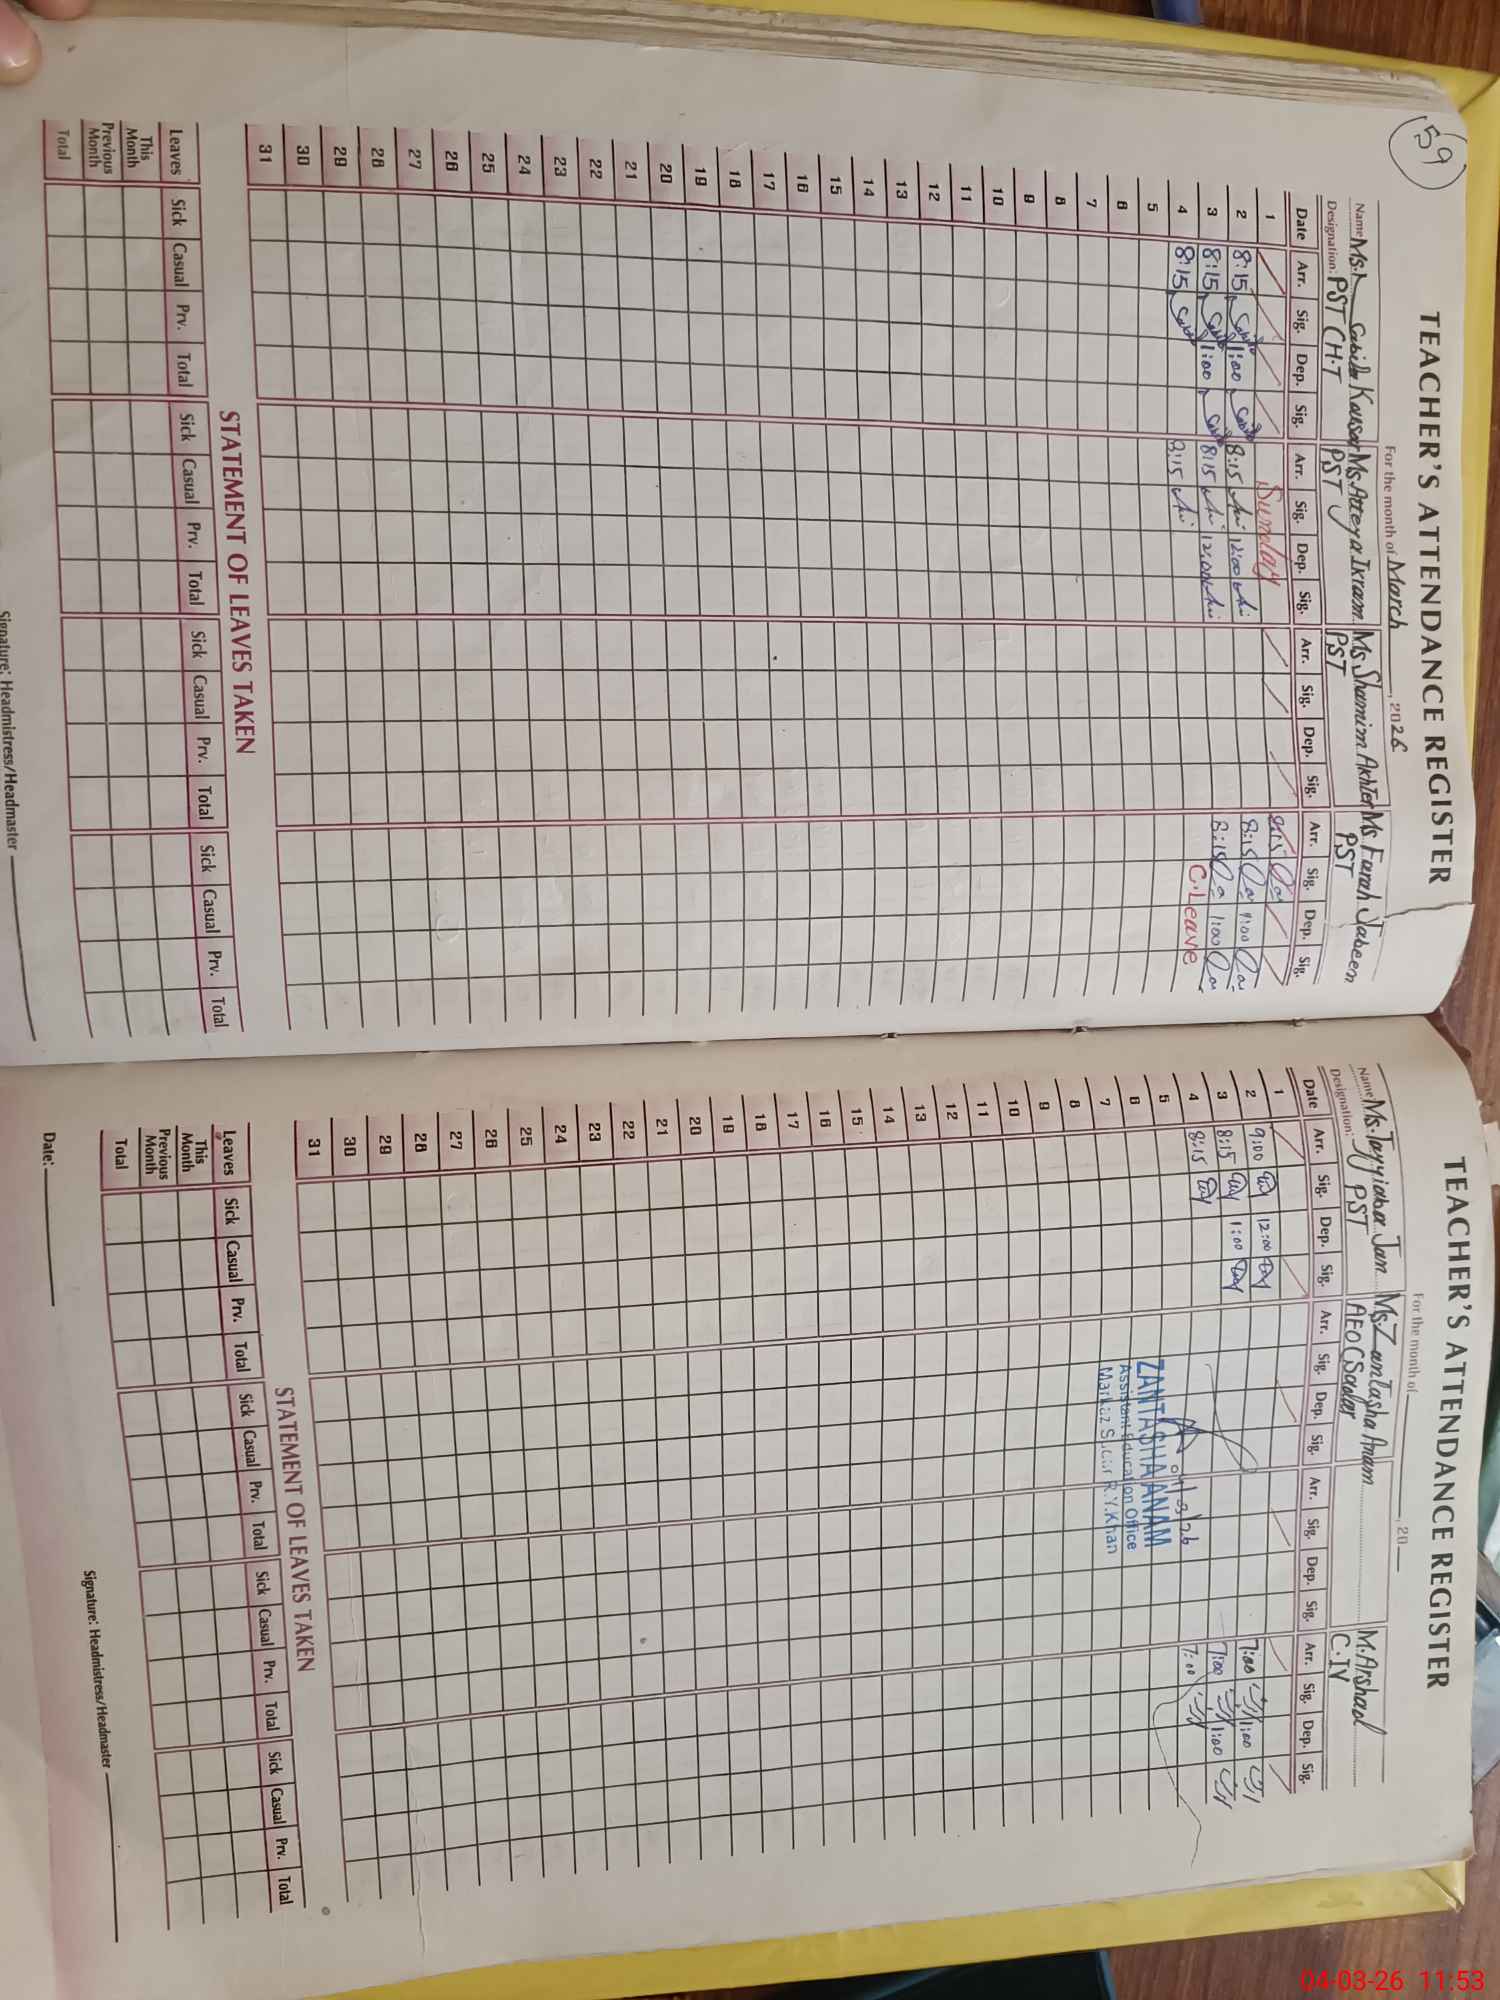 59
TEACHER'S ATTENDANCE REGISTER
For the month of March, 2026
Name Ms. Sabila Kausar Ms. Atteya Ikram Ms. Shamim Akhter Ms. Farah Jabeen
Designation: PST (H.T PST PST PST
Date Arr. Sig. Dep. Sig. Arr. Sig. Dep. Sig. Arr. Sig. Dep. Sig. Arr. Sig. Dep. Sig.
1 Sunday 8:15
2 8:15 1:00 8:15 12:00 8:15 1:00
3 8:15 1:00 8:15 12:00 8:15 1:00
4 8:15 8:15 C.Leave
5
6
7
8
9
10
11
12
13
14
15
16
17
18
19
20
21
22
23
24
25
26
27
28
29
30
31
STATEMENT OF LEAVES TAKEN
Leaves Sick Casual Prv. Total Sick Casual Prv. Total Sick Casual Prv. Total Sick Casual Prv. Total
This Month
Previous Month
Total
Signature: Headmistress/Headmaster
TEACHER'S ATTENDANCE REGISTER
For the month of , 20
Name Ms. Tayyiaba Jan Ms. Zantasha Anam M. Arshad
Designation: PST AEO (Sadar C.IV
Date Arr. Sig. Dep. Sig. Arr. Sig. Dep. Sig. Arr. Sig. Dep. Sig. Arr. Sig. Dep. Sig.
1
2 9:00 12:00 7:00 1:00
3 8:15 1:00 7:00 1:00
4 8:15 7:00
04/03/26
5
ZANTASHA ANAM
6
Assistant Education Office
7
Markaz Sadar R.Y.Khan
8
9
10
11
12
13
14
15
16
17
18
19
20
21
22
23
24
25
26
27
28
29
30
31
STATEMENT OF LEAVES TAKEN
Leaves Sick Casual Prv. Total Sick Casual Prv. Total Sick Casual Prv. Total Sick Casual Prv. Total
This Month
Previous Month
Total
Date:
Signature: Headmistress/Headmaster
04-03-26 11:53